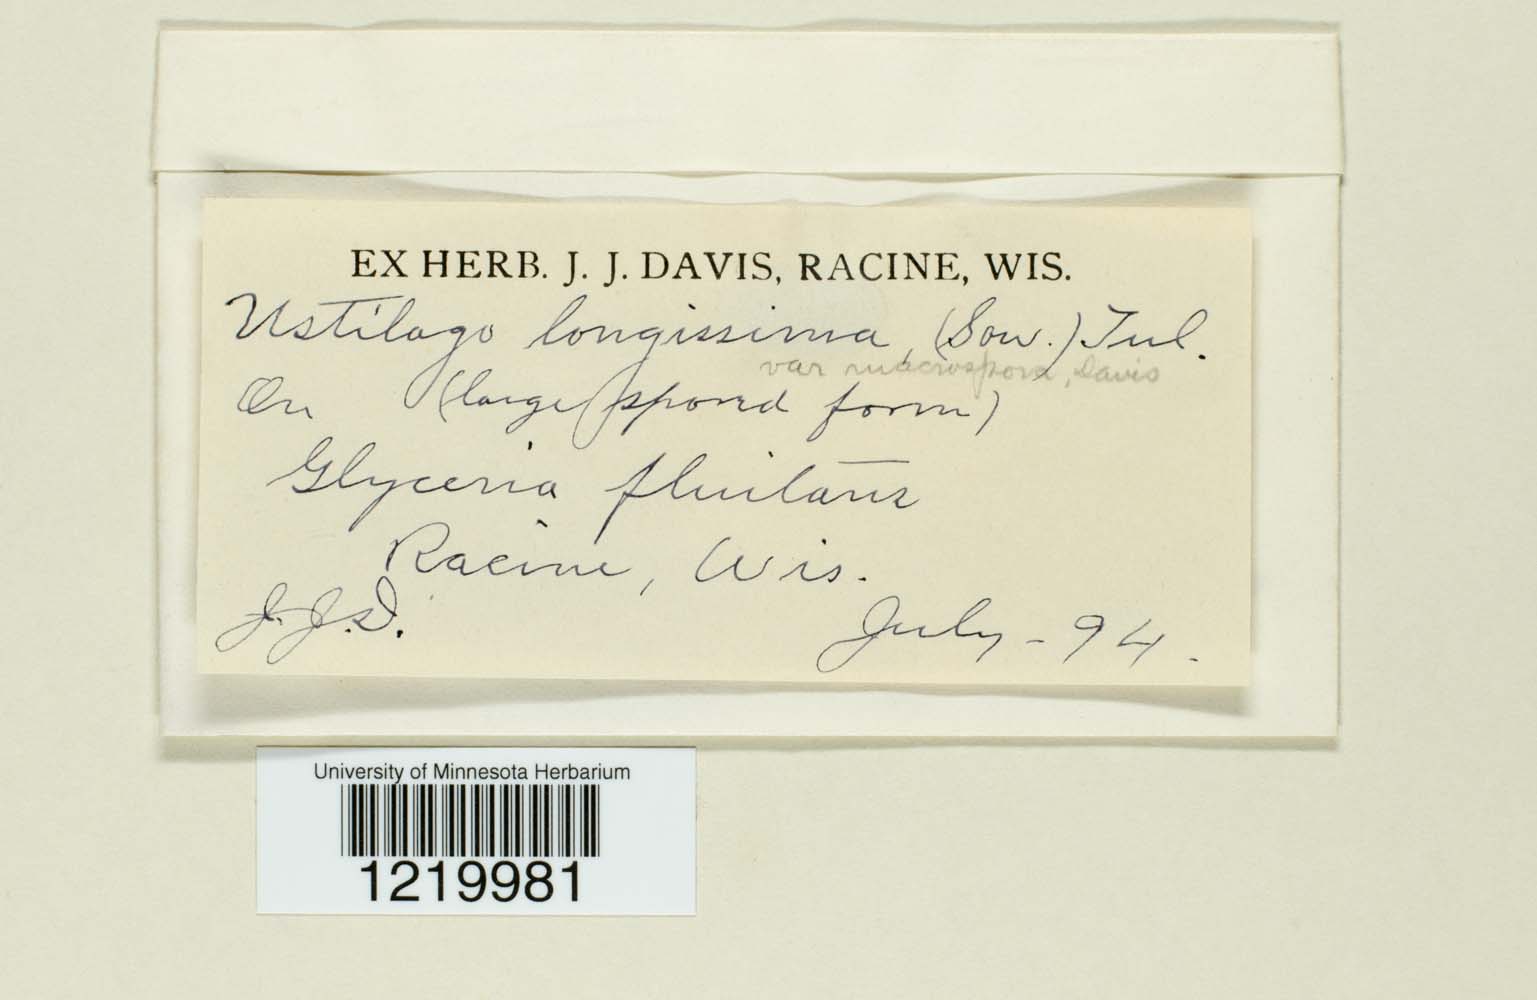 EX HERB. J. J. DAVIS, RACINE, WIS.
Ustilago longissima (Sow.) Tul.
var macrospora, Davis
On (large spored form)
Glyceria fluitans
Racine, Wis.
J. J. D. July - 94.
University of Minnesota Herbarium
1219981